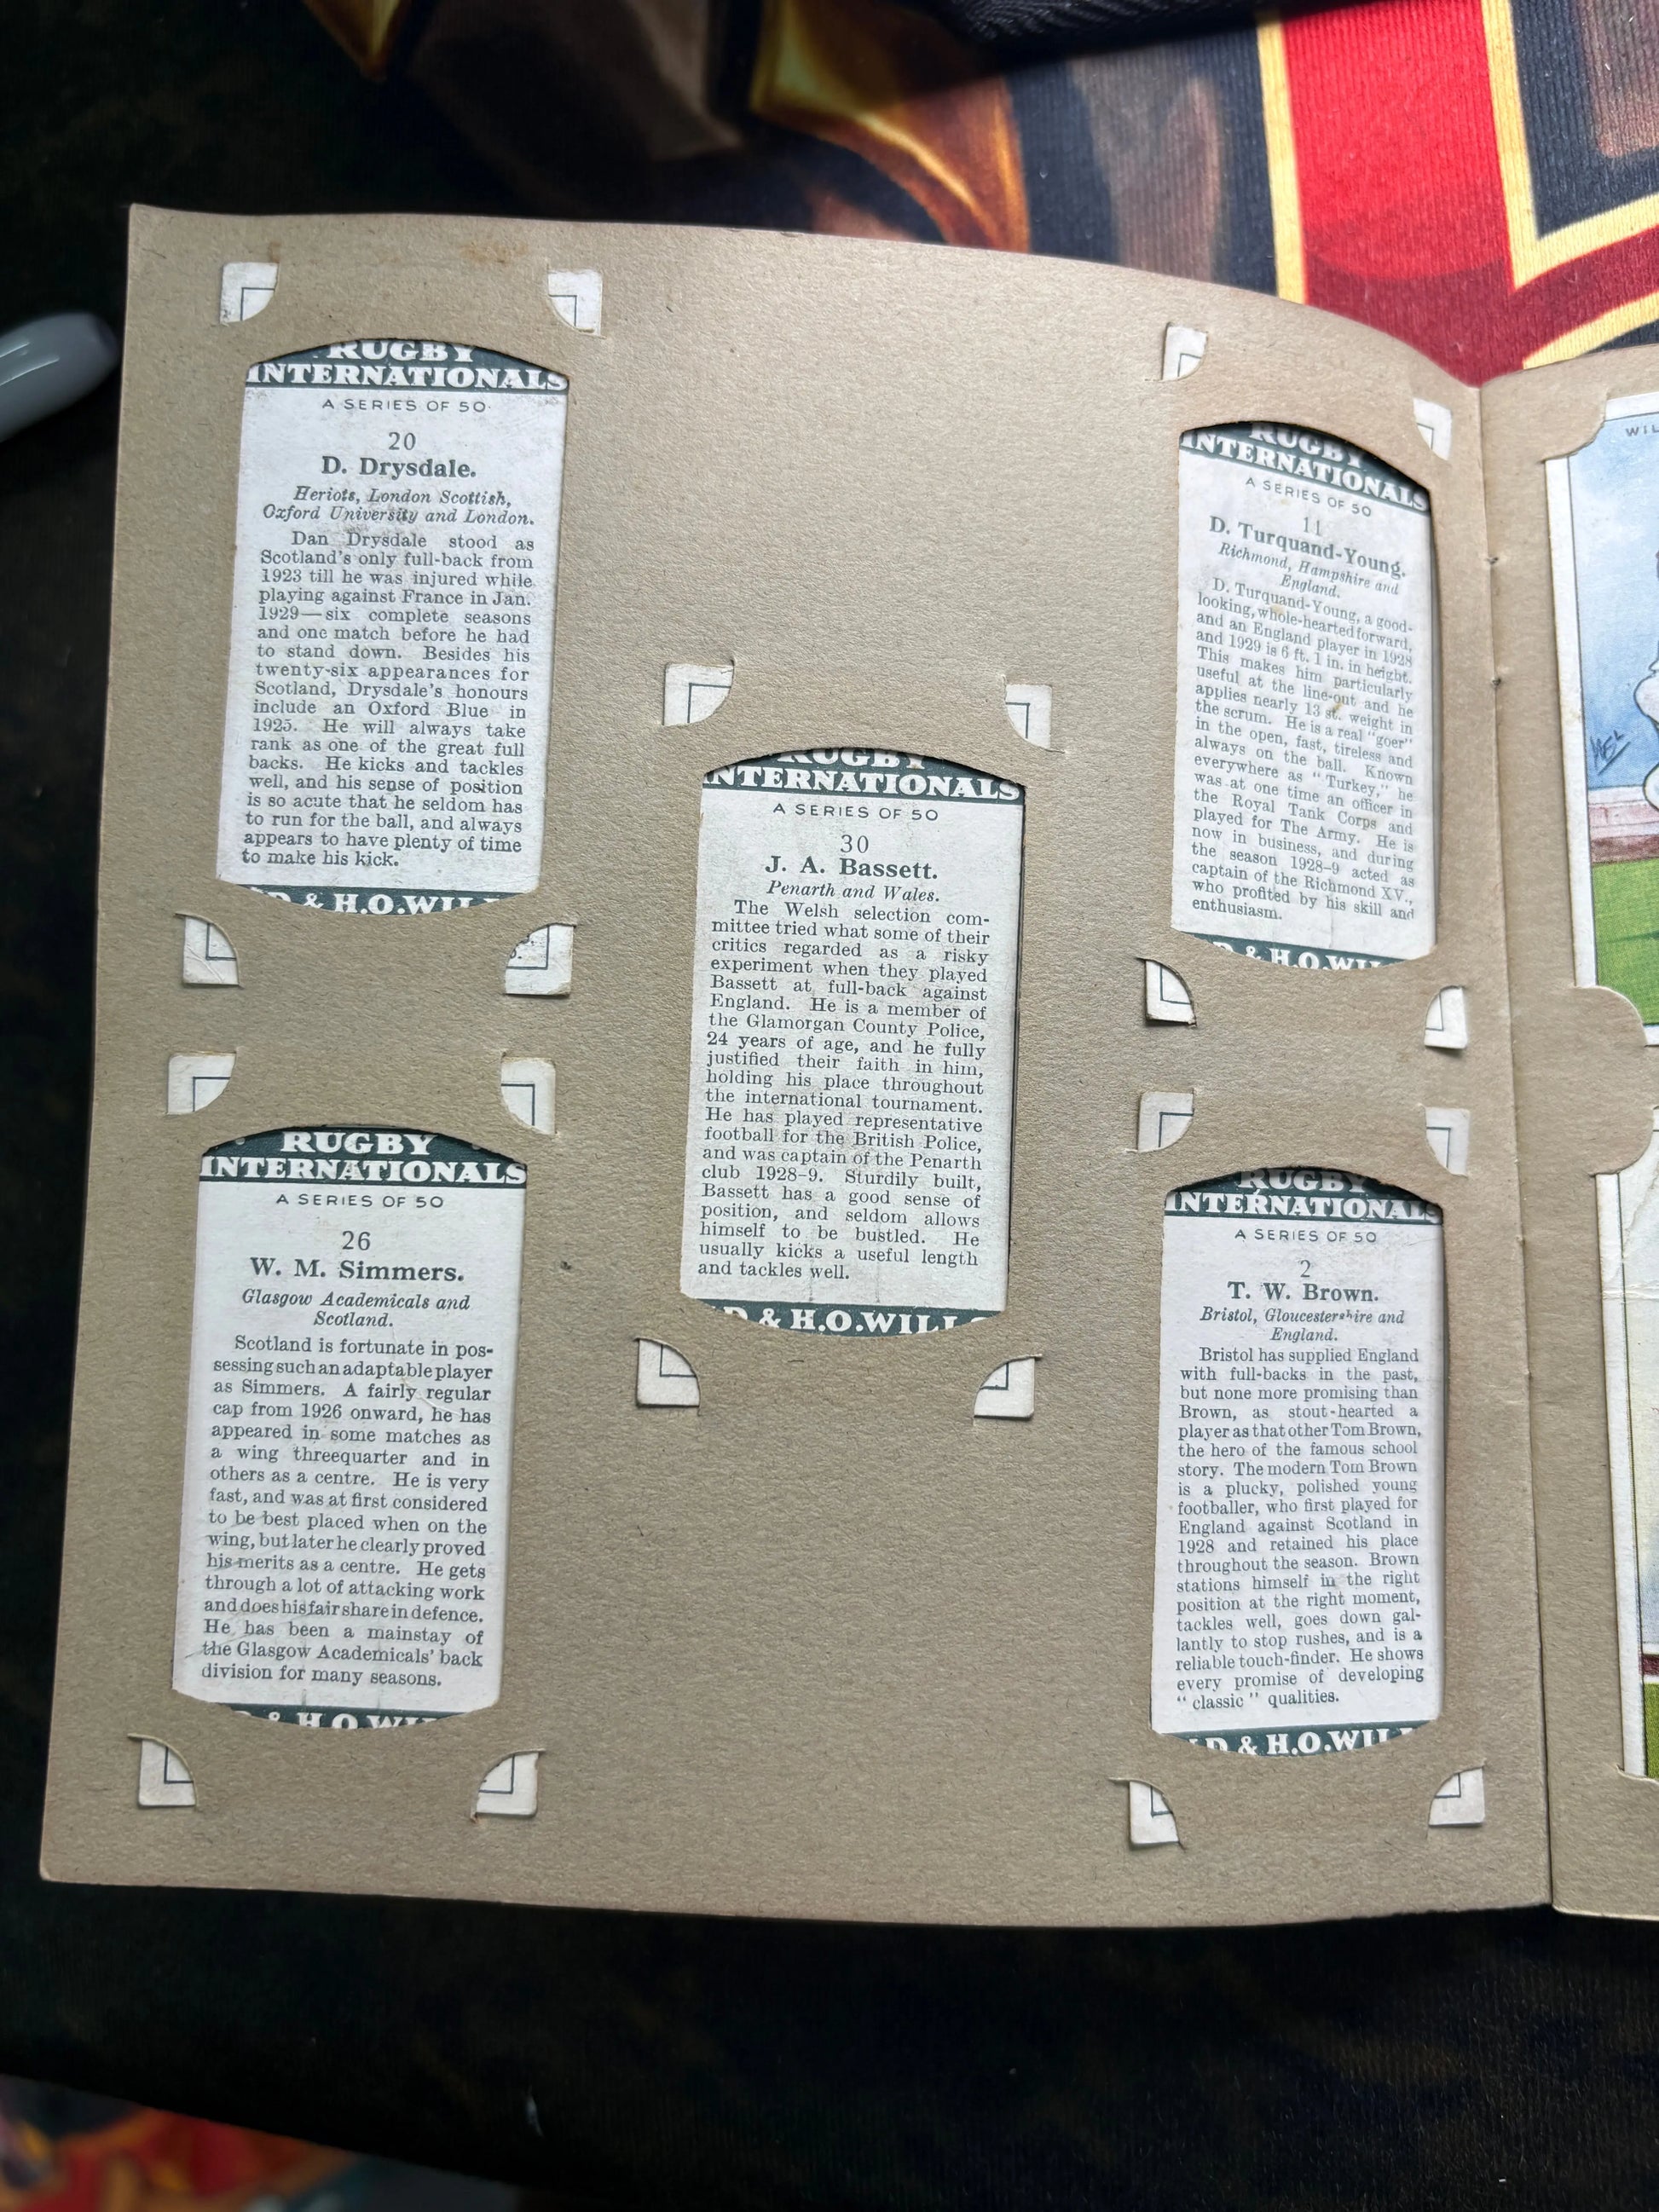 RUGBY
INTERNATIONALS
A SERIES OF 50
20
D. Drysdale.
Heriots, London Scottish,
Oxford University and London.
Dan Drysdale stood as
Scotland's only full-back from
1923 till he was injured while
playing against France in Jan.
1929—six complete seasons
and one match before he had
to stand down. Besides his
twenty-six appearances for
Scotland, Drysdale's honours
include an Oxford Blue in
1925. He will always take
rank as one of the great full
backs. He kicks and tackles
well, and his sense of position
is so acute that he seldom has
to run for the ball, and always
appears to have plenty of time
to make his kick.
D & H.O.WIL
RUGBY
INTERNATIONALS
A SERIES OF 50
26
W. M. Simmers.
Glasgow Academicals and
Scotland.
Scotland is fortunate in pos-
sessing such an adaptable player
as Simmers. A fairly regular
cap from 1926 onward, he has
appeared in some matches as
a wing threequarter and in
others as a centre. He is very
fast, and was at first considered
to be best placed when on the
wing, but later he clearly proved
his merits as a centre. He gets
through a lot of attacking work
and does his fair share in defence.
He has been a mainstay of
the Glasgow Academicals' back
division for many seasons.
& H.O.WIL
RUGBY
INTERNATIONALS
A SERIES OF 50
30
J. A. Bassett.
Penarth and Wales.
The Welsh selection com-
mittee tried what some of their
critics regarded as a risky
experiment when they played
Bassett at full-back against
England. He is a member of
the Glamorgan County Police,
24 years of age, and he fully
justified their faith in him,
holding his place throughout
the international tournament.
He has played representative
football for the British Police,
and was captain of the Penarth
club 1928-9. Sturdily built,
Bassett has a good sense of
position, and seldom allows
himself to be bustled. He
usually kicks a useful length
and tackles well.
D & H.O.WILL
RUGBY
INTERNATIONALS
A SERIES OF 50
11
D. Turquand-Young.
Richmond, Hampshire and
England.
D. Turquand-Young, a good-
looking, whole-hearted forward,
and an England player in 1928
and 1929 is 6 ft. 1 in. in height.
This makes him particularly
useful at the line-out and he
applies nearly 13 st. weight in
the scrum. He is a real "goer"
in the open, fast, tireless and
always on the ball. Known
everywhere as "Turkey," he
was at one time an officer in
the Royal Tank Corps and
played for The Army. He is
now in business, and during
the season 1928-9 acted as
captain of the Richmond XV.,
who profited by his skill and
enthusiasm.
D & H.O.WIL
RUGBY
INTERNATIONALS
A SERIES OF 50
2
T. W. Brown.
Bristol, Gloucestershire and
England.
Bristol has supplied England
with full-backs in the past,
but none more promising than
Brown, as stout-hearted a
player as that other Tom Brown,
the hero of the famous school
story. The modern Tom Brown
is a plucky, polished young
footballer, who first played for
England against Scotland in
1928 and retained his place
throughout the season. Brown
stations himself in the right
position at the right moment,
tackles well, goes down gal-
lantly to stop rushes, and is a
reliable touch-finder. He shows
every promise of developing
"classic" qualities.
D & H.O.WIL
WIL
MEL